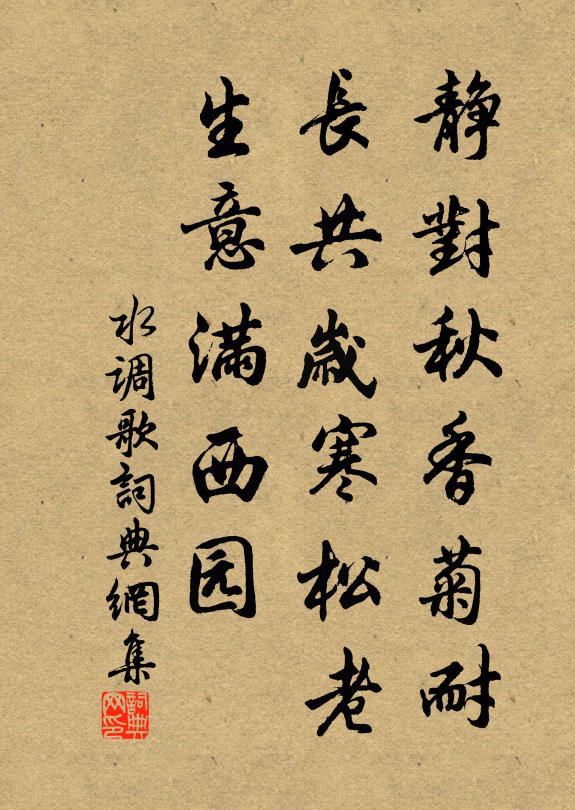 静對秋香菊耐
長共歲寒松老
生意滿西园
水调歌詞典網集
詞典
网印